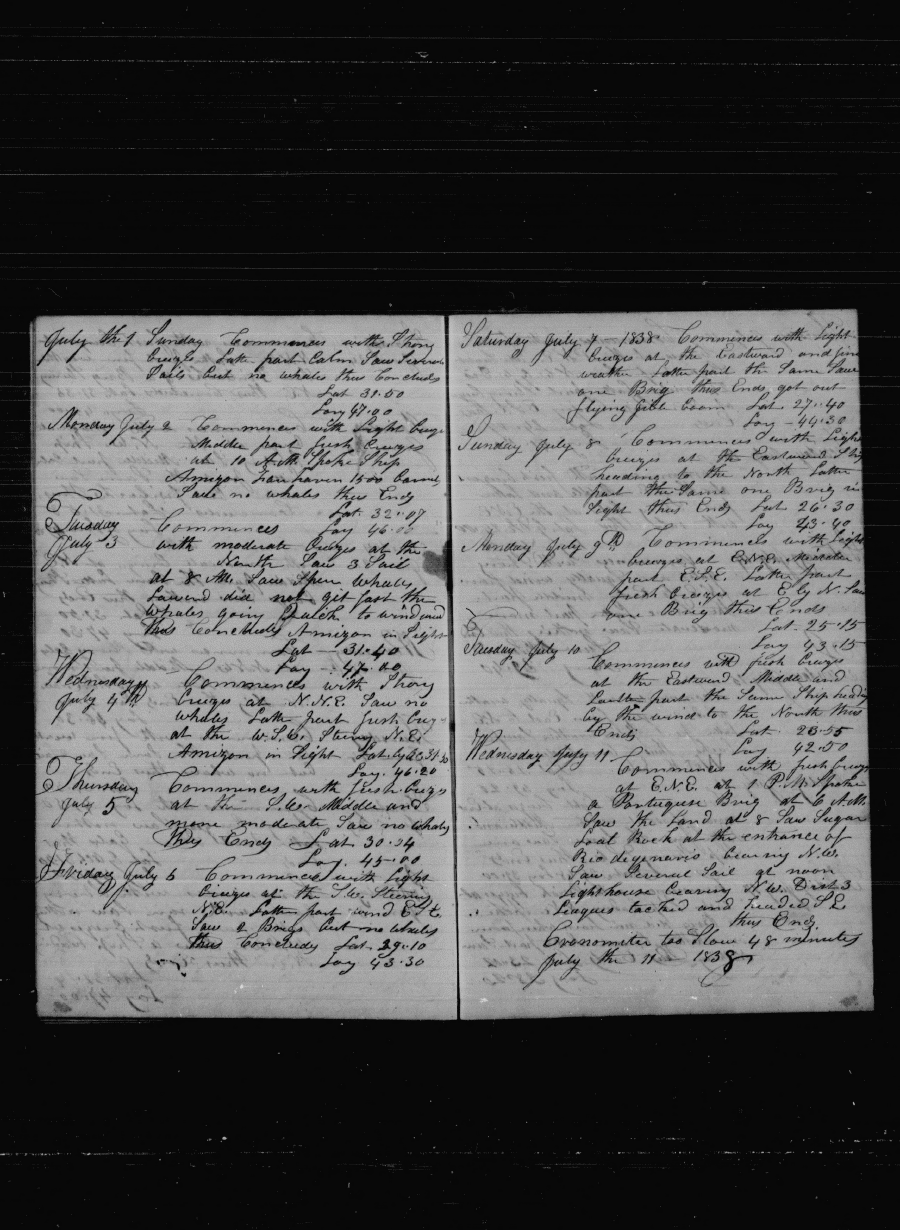 July the 1 Sunday Commences with Strong
breezes Latte part Calm Saw Several
Sails but no whales thus Concludes
Lat 31-50
Long 47-00
Monday July 2 Commences with Light breezes
Middle part fresh breezes
at 10 A.M. Spoke Ship
Amizon 1500 barrels
Saw no whales thus Ends
Lat 32-07
Tuesday Commences Long 46-00
July 3 with moderate breezes at the
North Saw 3 Sail
at 8 A.M. Saw Sperm Whales
Lowered did not git fast the
Whales going Quick to windward
thus Concludes Amizon in Sight
Lat 31-40
Long 47-00
Wednesday Commences with Strong
July 4th breezes at N.N.E. Saw no
whales Latte part fresh breezes
at the W.S.W. Stering N.E.
Amizon in Sight Lat by
Long 46-20
Thursday Commences with fresh breezes
July 5 at the S.W. Middle and
more moderate Saw no whales
thus Ends Lat 30-24
Long 45-00
Friday July 6 Commences with Light
breezes at the S.W. Steering
N.E. Latter part wind
Saw 2 Brigs but no whales
thus Concludes Lat 29-10
Long 43-30
Saturday July 7 1838 Commences with Light
breezes at the Eastward and fine
weather Latter part the Same Saw
one Brig thus Ends got out
flying Gibb boom Lat 27-40
Long 44-30
Sunday July 8 Commences with Light
breezes at the Eastward Ship
heading to the North Latter
part the Same one Brig in
Sight thus Ends Lat 26-30
Long 43-40
Monday July 9th Commences with Light
breezes at E.N.E. Middle
part E.S.E. Latter part
fresh breezes at E by N. Saw
one Brig thus Ends
Lat 25-15
Long 43-15
Tuesday July 10
Commences with fresh breezes
at the Eastward Middle and
Latter part the Same Ship heading
by the wind to the North thus
Ends Lat 23-55
Long 42-50
Wednesday July 11
Commences with fresh breezes
at E.N.E. at 1 P.M. Spoke
a Portuguse Brig at 6 A.M.
Saw the Land at 8 Saw Sugar
Loal Rock at the entrance of
Riodegenario bearing N.W.
Saw Several Sail at noon
Lighthouse bearing N.W. Dist 3
Leagues tacked and headed S.E.
thus Ends
Cronometer too Slow 48 minutes
July the 11 1838